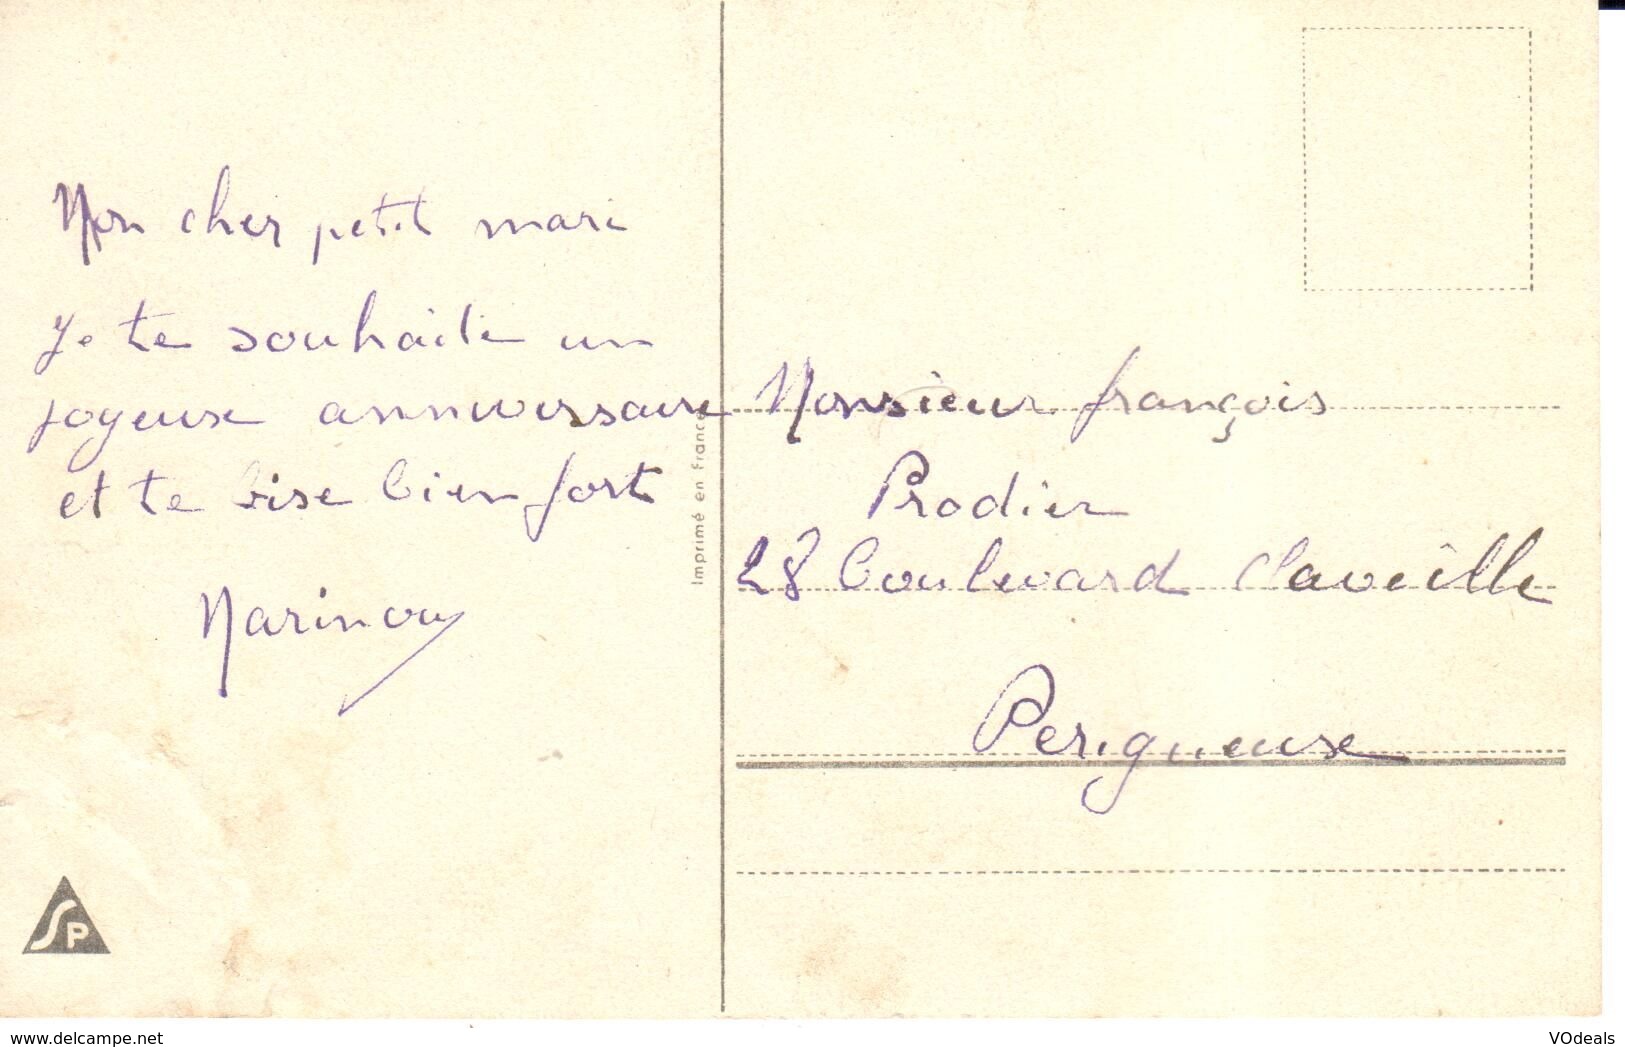 Mon cher petit mari
Je te souhaite un
joyeuse anniversaire
et te bise bien fort
Marinou
Imprimé en France
SP
Monsieur françois
Prodier
28 boulevard Claveille
Perigueuse
www.delcampe.net
VOdeals